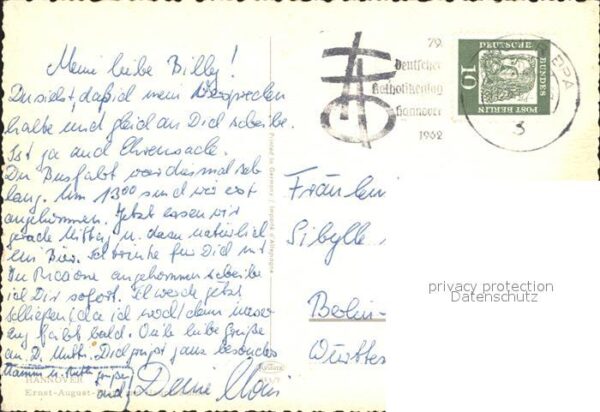 Meine liebe Billy!
Du siehst, daß ich mein Versprechen
halte und gleich an Dich schreibe.
Ist ja auch Ehrensache.
Die Busfahrt war diesmal sehr
lang. Um 13⁰⁰ sind wir erst
angekommen. Jetzt essen wir
gerade Mittag u. dann natürlich
ein Bier. Ich trinke für Dich mit
angekommen schreibe
ich Dir sofort. Ich werde jetzt
schließen, da ich noch
bald. Viele liebe Grüße
an D. Mutti. Dich grüßt ganz besonders
und Deine
HANNOVER
Ernst-August-
Printed in Germany / Imprimé d'Allemagne
79.
Deutscher
Katholikentag
Hannover
1962
DEUTSCHE
BUNDES
POST BERLIN
10
3
Fräulein
Sibylle
Berlin-
Württe
privacy protection
Datenschutz